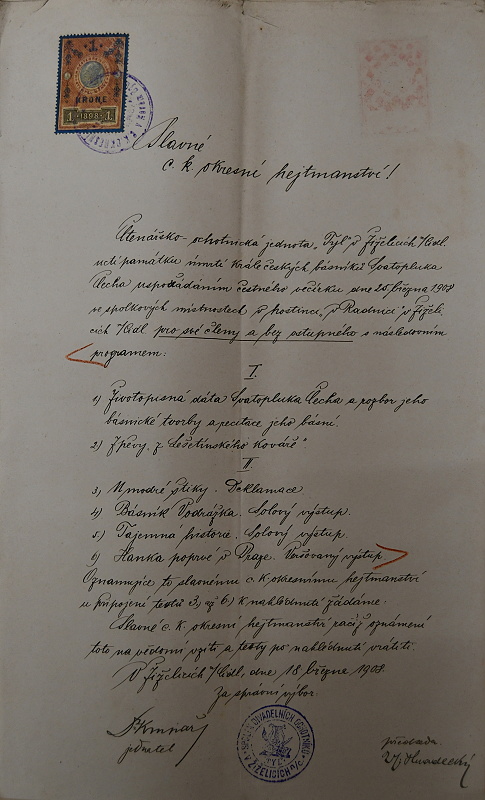 1
KRONE
1 1898 1
Slavné
c. k. okresní hejtmanství!
Čtenářsko-ochotnická jednota „Tyl" v Žiželicích n/Cidl.
uctí památku úmrtí krále českých básníků Svatopluka
Čecha uspořádáním čestného večírku dne 25. března 1908
ve spolkových místnostech v hostinci „v Radnici" v Žiželi-
cích n/Cidl. pro své členy a bez vstupného s následovním
programem:
I.
1) Životopisná dáta Svatopluka Čecha a rozbor jeho
básnické tvorby a recitace jeho básní.
2) Zpěvy z „Lešetínského kováře"
II.
3) U modré štiky. Deklamace.
4) Básník Vodrážka. Solový výstup.
5) Tajemná historie. Solový výstup.
6) Hanka poprvé v Praze. Veršovaný výstup.
Oznamujíce to slavnému c. k. okresnímu hejtmanství
u připojení textů 3.) až 6.) k nahlédnutí žádáme:
Slavné c. k. okresní hejtmanství račiž oznámení
toto na vědomí vzíti a texty po nahlédnutí vrátiti.
V Žiželicích n/Cidl., dne 18. března 1908.
Za správní výbor:
jednatel
předseda
DIVADELNÍCH OCHOTNÍKŮ
"TYL"
V ŽIŽELICÍCH n/C.